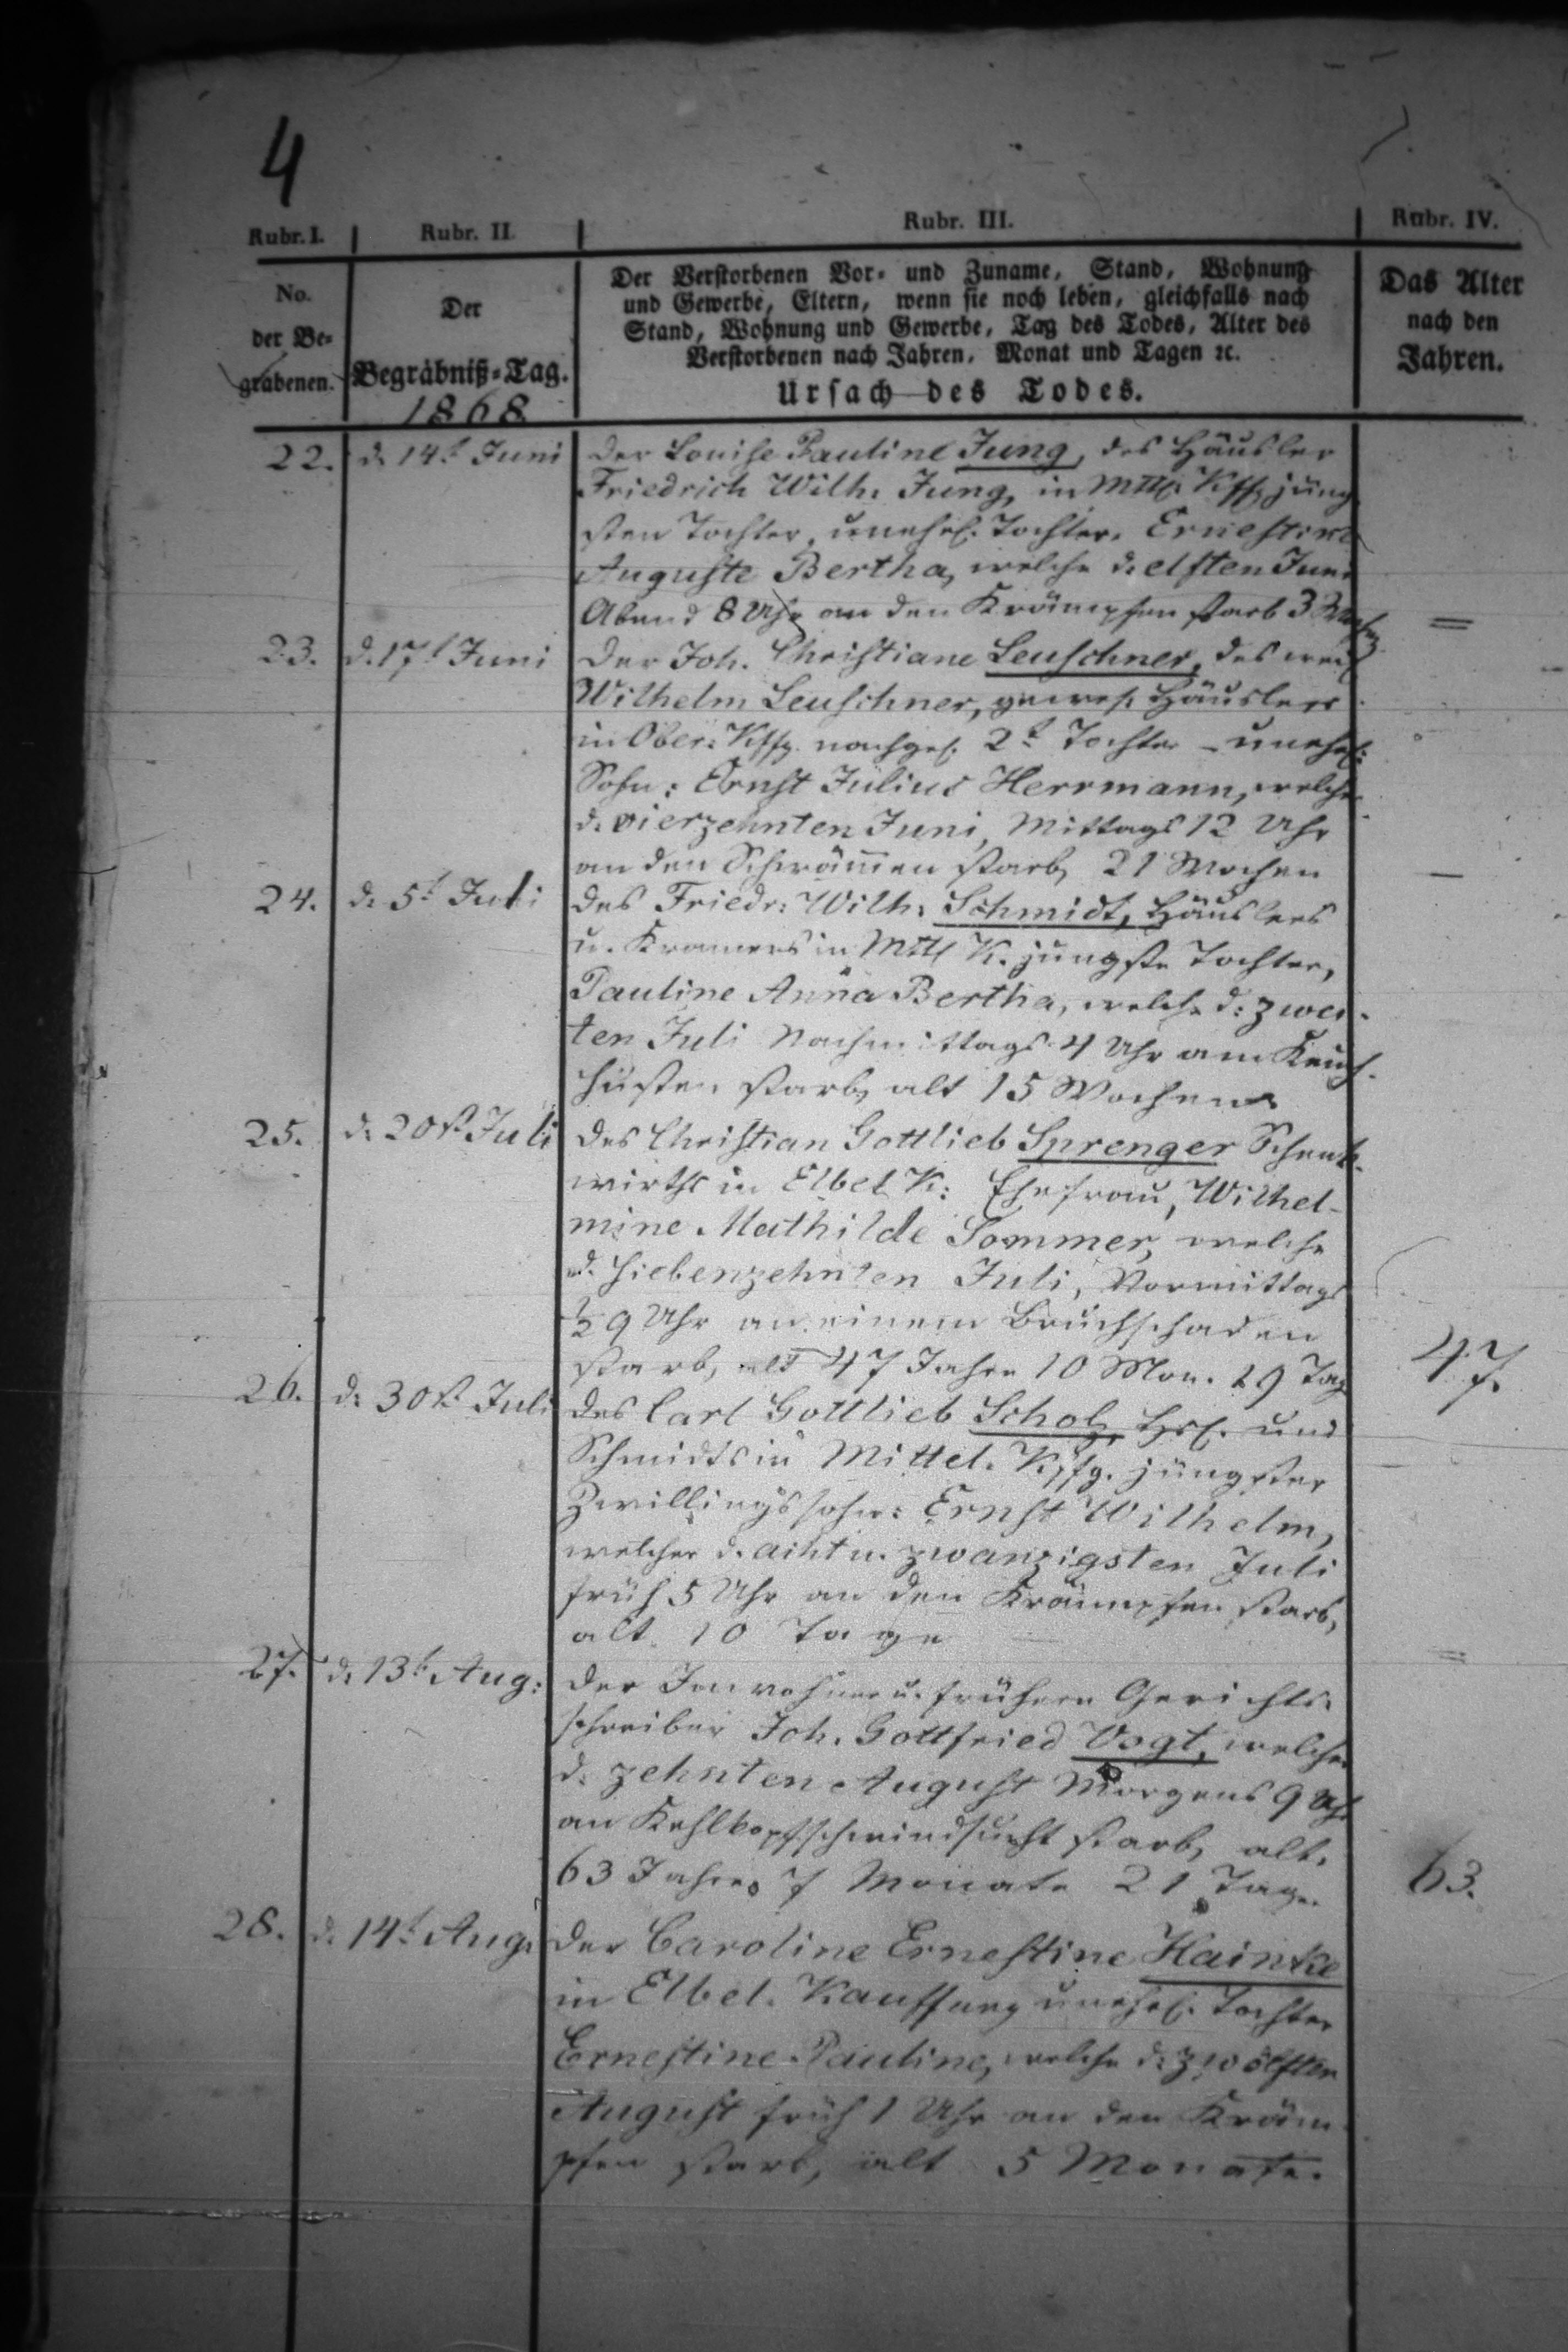 4
Rubr. I. Rubr. II. Rubr. III. Rubr. IV.
No.
der Be-
grabenen.
Der
Begräbniß-Tag.
1868
Der Verstorbenen Vor- und Zuname, Stand, Wohnung
und Gewerbe, Eltern, wenn sie noch leben, gleichfalls nach
Stand, Wohnung und Gewerbe, Tag des Todes, Alter des
Verstorbenen nach Jahren, Monat und Tagen ꝛc.
Ursach des Todes.
Das Alter
nach den
Jahren.
22. d. 14t Juni Der Louise Pauline Jung, des Häusler
Friedrich Wilh. Jung, in Mttl. Kffg jüng
sten Tochter, unehel. Tochter, Ernestine
Auguste Bertha, welche d. elften Juni
Abend 8 Uhr an den Krämpfen starb 3 =
23. d. 17t Juni Der Joh. Christiane Leuschner, des weil
Wilhelm Leuschner, gewes. Häuslers
in Ober-Kffg. nachgel. 2t Tochter - unehel.
Sohn: Ernst Julius Herrmann, welcher
d. vierzehnten Juni, Mittags 12 Uhr
an den Schwämmen starb, 21 Wochen —
24. d. 5t Juli Des Friedr. Wilh. Schmidt, Häuslers
u. Kramers in Mttl K. jüngste Tochter,
Pauline Anna Bertha, welche d. zwei-
ten Juli Nachmittags 4 Uhr am Keuch-
husten starb, alt 15 Wochen
25. d. 20st Juli Des Christian Gottlieb Sprenger Schenk-
wirths in Elbel K: Ehefrau, Wilhel-
mine Mathilde Sommer, welche
d. siebenzehnten Juli, Vormittags
½9 Uhr an einem Bruchschaden
starb, alt 47 Jahre 10 Mon. 29 Tag 47.
26. d. 30st Juli Des Carl Gottlieb Scholz, Hsl. und
Schmidts in Mittel. Kffg. jüngster
Zwillingssohn: Ernst Wilhelm,
welcher d. acht u. zwanzigsten Juli
früh 5 Uhr an den Krämpfen starb,
alt 10 Tage =
27. d. 13t Aug: Der Inwohner u. frühere Gerichts-
schreiber Joh. Gottfried Vogt, welcher
d. zehnten August Morgens 9 Uhr
an Kehlkopfschwindsucht starb, alt,
63 Jahre 7 Monate 21 Tage. 63.
28. d. 14t Aug. Der Caroline Ernestine Hainke
in Elbel. Kauffung unehel. Tochter
Ernestine Pauline, welche d. zwölften
August früh 1 Uhr an den Kräm-
pfen starb, alt 5 Monate.